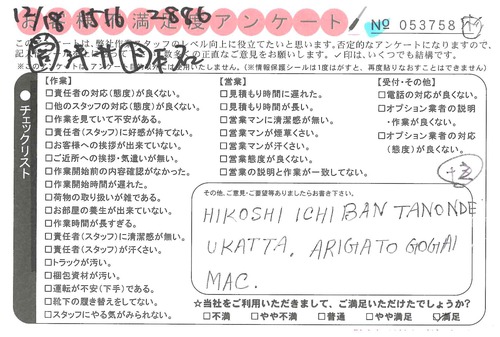 12/18
2886
お客様満足度アンケート
№ 053758
このアンケートは、弊社作業スタッフのレベル向上に役立てたいと思います。否定的なアンケートになりますので、
数々の正直なご意見をお願いします。✓印は、いくつでも結構です。
チェックリスト
【作業】
□責任者の対応(態度)が良くない。
□他のスタッフの対応(態度)が良くない。
□作業を見ていて不安がある。
□責任者(スタッフ)に好感が持てない。
□お客様への挨拶が出来ていない。
□ご近所への挨拶・気遣いが無い。
□作業開始前の内容確認がなかった。
□作業開始時間が遅れた。
□荷物の取り扱いが雑である。
□お部屋の養生が出来ていない。
□作業時間が長すぎる。
□責任者(スタッフ)に清潔感が無い。
□責任者(スタッフ)が汗くさい。
□トラックが汚い。
□梱包資材が汚い。
□運転が不安(下手)である。
□靴下の履き替えをしてない。
□スタッフにやる気がみられない。
【営業】
□見積もり時間に遅れた。
□見積もり時間が長い。
□営業マンに清潔感が無い。
□営業マンが煙草くさい。
□営業マンが汗くさい。
□営業態度が良くない。
□営業の説明と作業が一致してない。
【受付・その他】
□電話の対応が良くない。
□オプション業者の説明
・作業が良くない。
□オプション業者の対応
(態度)が良くない。
その他、ご意見・ご要望等ありましたらお書き下さい。
HIKOSHI ICHI BAN TANONDE
UKATTA. ARIGATO GOGAI
MAC.
☆当社をご利用いただきまして、ご満足いただけたでしょうか?
□不満 □やや不満 □普通 □やや満足 ☑満足